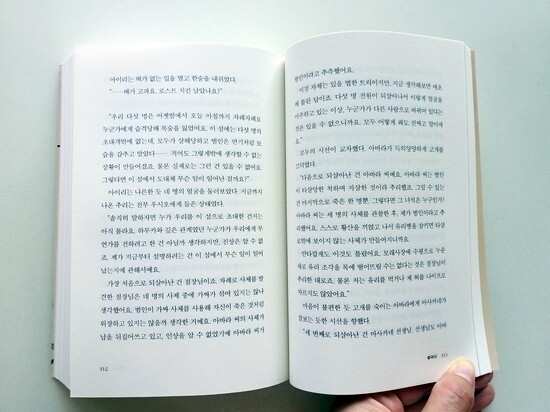 아이리는 혀가 없는 입을 열고 한숨을 내쉬었다.
"……배가 고파요. 로스트 치킨 남았나요?"
"우리 다섯 명은 어젯밤에서 오늘 아침까지 차례차례로
누군가에게 습격당해 목숨을 잃었어요. 이 섬에는 다섯 명의
초대객밖에 없는데, 모두가 살해당하고 범인은 연기처럼 모
습을 감추고 말았다…… 적어도 그렇게밖에 생각할 수 없는
상황이 만들어졌죠. 물론 실제로는 그런 건 있을 수 없어요.
그렇다면 이 섬에서 도대체 무슨 일이 일어난 걸까요?"
아이리는 나른한 듯 네 명의 얼굴을 둘러보았다. 지금까지
나온 추리는 전부 우시오에게 들은 상태였다.
"솔직히 말하자면 누가 우리를 이 섬으로 초대한 건지는
아직 몰라요. 하루카와 깊은 관계였던 누군가가 우리에게 무
언가를 전하려고 한 건 아닐까 생각하지만, 진상은 알 수 없
죠. 제가 지금부터 설명하려는 건 이 섬에서 무슨 일이 일어
났는지에 관해서예요.
가장 처음으로 되살아난 건 점장님이죠. 차례로 사체를 발
견한 점장님은 네 명의 사체 중에 가짜가 섞여 있지는 않나
생각했어요. 범인이 가짜 사체를 사용해 자신이 죽은 것처럼
위장하고 있지는 않을까 생각한 거예요. 아바라 씨의 사체가
납을 뒤집어쓰고 있고, 인상을 알 수 없었기에 아바라 씨가
312
범인이라고 추측했어요.
이것 자체는 있을 법한 트릭이지만, 지금 생각해보면 애초
에 틀린 답이죠. 다섯 명 전원이 되살아나서 이렇게 얼굴을
마주하고 있는 이상, 누군가가 다른 사람으로 바뀌어 있다는
것은 있을 수 없으니까요. 모두 이렇게 해도 전혀고 말이에
요."
모두의 시선이 교차했다. 아바라가 득의양양하게 고개를
끄덕였다.
"다음으로 되살아난 건 아바라 씨예요. 아바라 씨는 범인
이 타살당한 척하며 자살한 것이라 추리했죠. 그럴 수 있는
건 마지막으로 죽은 한 명뿐. 그렇다면 그 녀석은 누구인가?
아바라 씨는 세 명의 사체를 관찰한 후, 제가 범인이라고 했
어요. 스스로 황산을 끼얹고 나서 유리병을 삼키면 타살
로밖에 보이지 않는 사체가 만들어지니까요.
안타깝게도 이것도 틀렸어요. 모래사장에 수평으로 누운
채로 유리 조각을 목에 떨어뜨릴 수는 없다는 것은 점장님이
추리한 대로죠. 물론 저는 유리를 먹거나 제 혀를 나이프로
자르지도 않았어요."
마음이 불편한 듯 고개를 숙이는 아바라에게 마사카네가
깔보는 듯한 시선을 향했다.
"세 번째로 되살아난 건 마사카네 선생님. 선생님도 아바
313